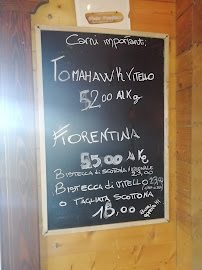 Carni importanti:
TOMAHAWK VITELLO
52,00 Al Kg
FIORENTINA
55,00 Al Kg
BISTECCA di SCOTTONA
BISTECCA di VITELLO
O TAGLIATA SCOTTONA
18,00